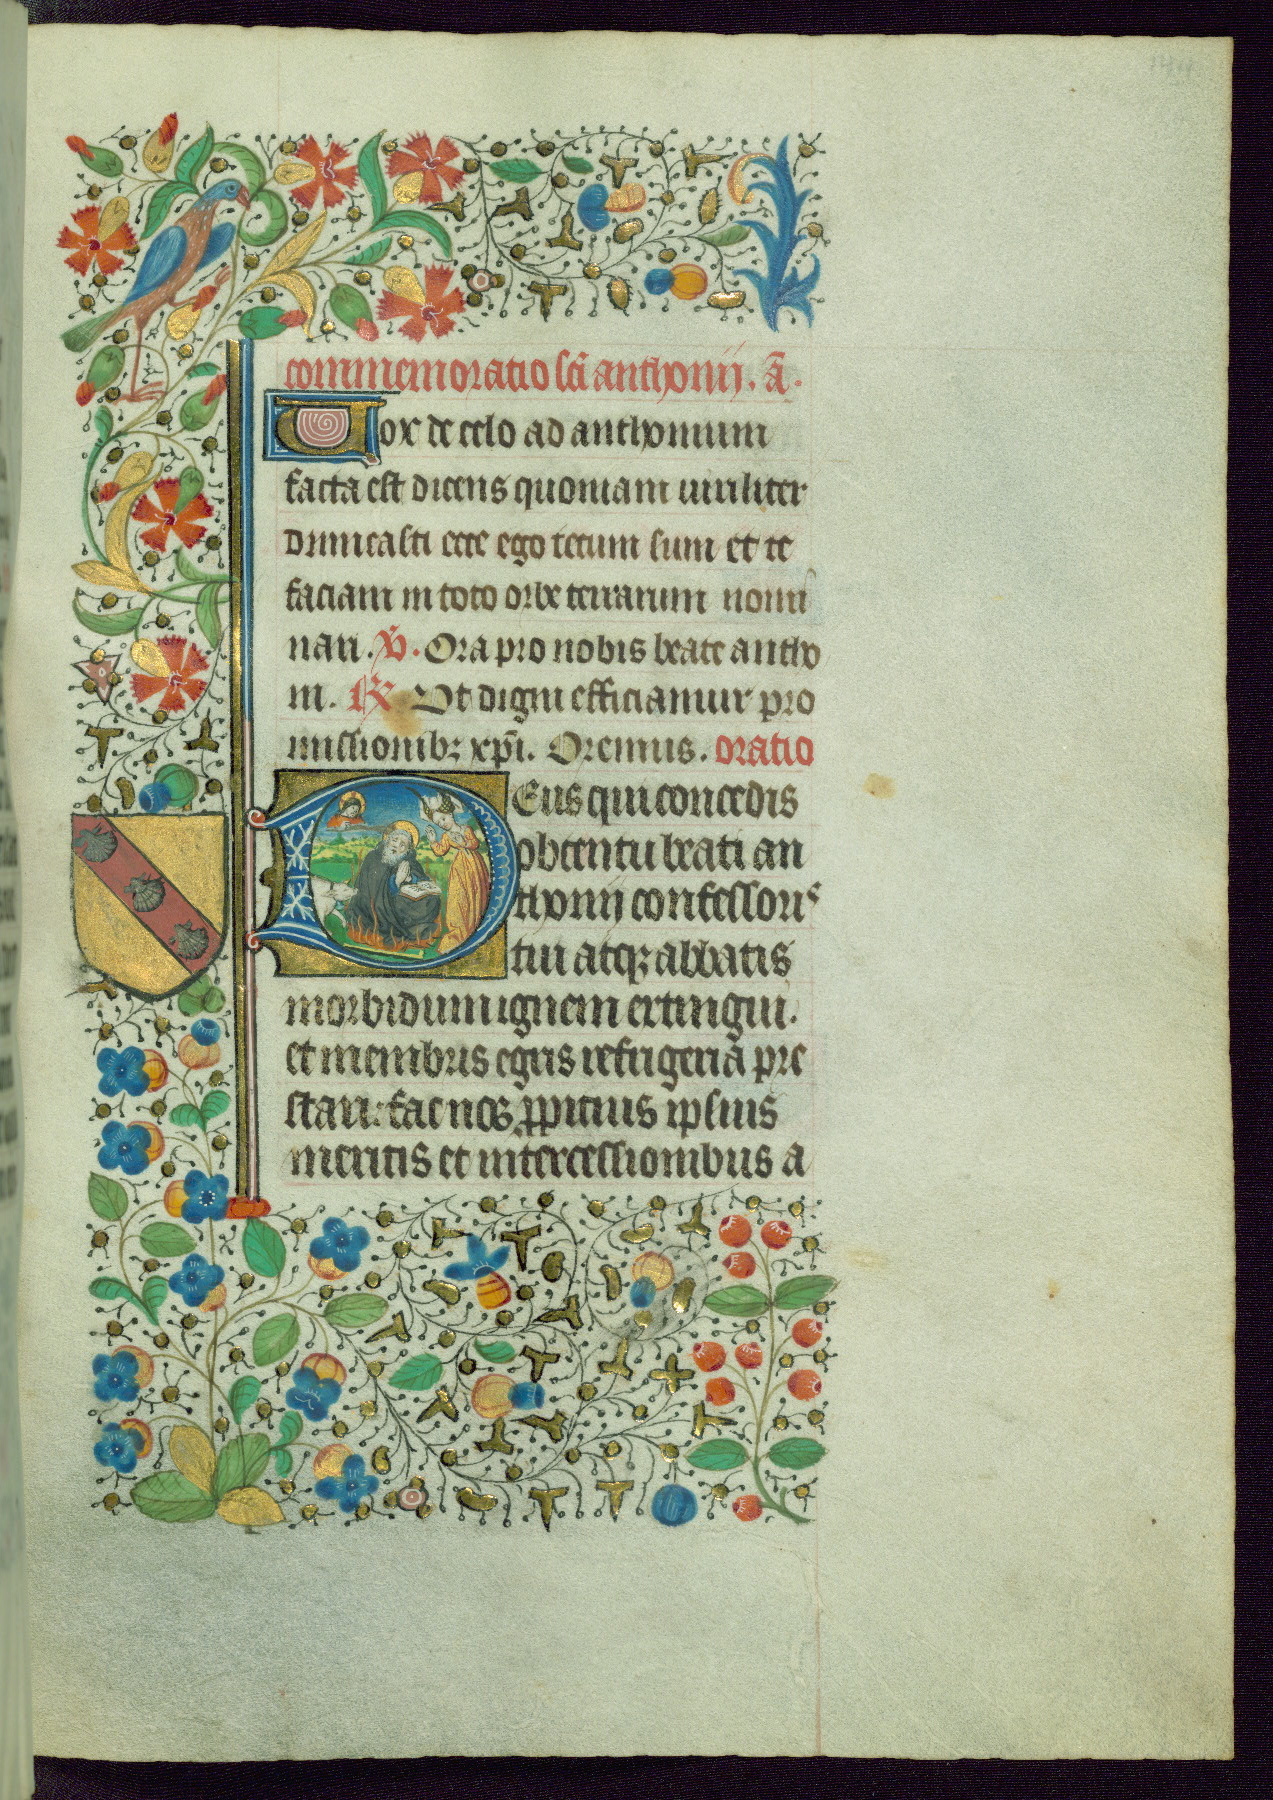 commemoratio sc̄i anthonij. ā.
Vox de celo ad anthonium
facta est dicens quoniam uiriliter
dimicasti ecce ego tecum sum et te
faciam in toto orbe terrarum nomi
nari. V̄. Ora pro nobis beate antho
ni. R̄ Ut digni efficiamur pro
missionibꝫ xp̄i. Oremus. oratio
Deus qui concedis
obtentu beati an
thonij confessoris
tui atqꝫ abbatis
morbidum ignem extingui.
et membris egris refrigeria pre
stari: fac nos ꝓpicius ipsius
meritis et intercessionibus a